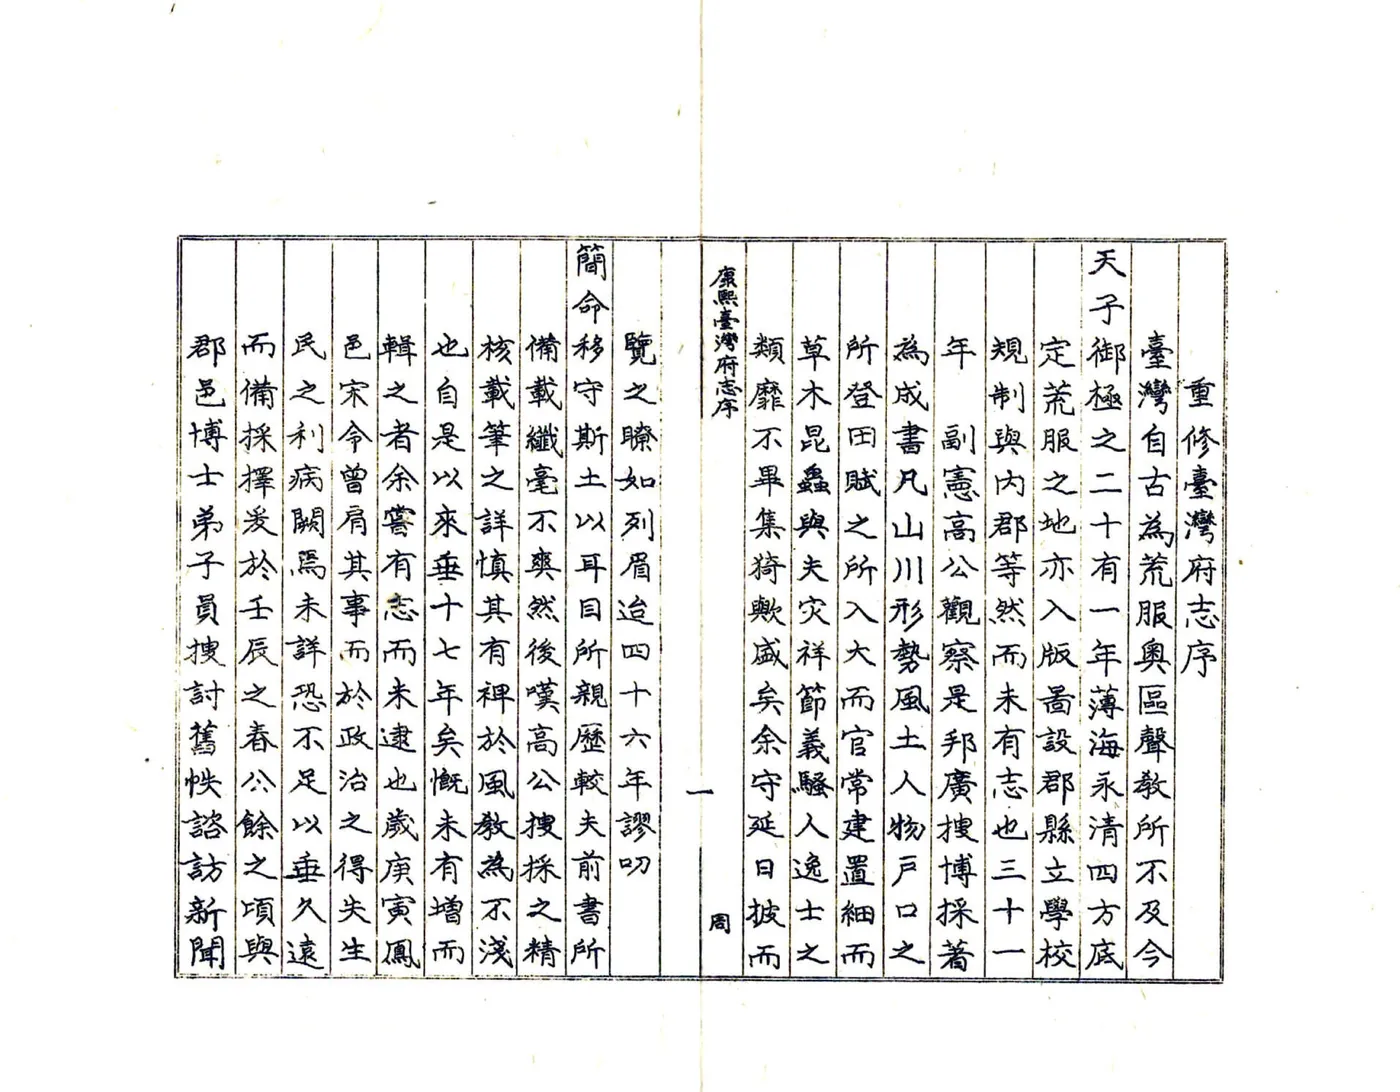 重修臺灣府志序
臺灣自古為荒服奧區聲教所不及今
天子御極之二十有一年薄海永清四方底
定荒服之地亦入版圖設郡縣立學校
規制與內郡等然而未有志也三十一
年　副憲高公觀察是邦廣搜博採著
為成書凡山川形勢風土人物戶口之
所登田賦之所入大而官常建置細而
草木昆蟲與夫灾祥節義騷人逸士之
類靡不畢集猗歟盛矣余守延日披而
康熙臺灣府志序
一
周
覽之瞭如列眉迨四十六年謬叨
簡命移守斯土以耳目所親歷較夫前書所
備載纖毫不爽然後嘆高公搜採之精
核載筆之詳慎其有裨於風教為不淺
也自是以來垂十七年矣慨未有增而
輯之者余嘗有志而未逮也歲庚寅鳳
邑宋令曾肩其事而於政治之得失生
民之利病闕焉未詳恐不足以垂久遠
而備採擇爰於壬辰之春公餘之頃與
郡邑博士弟子員搜討舊帙諮訪新聞